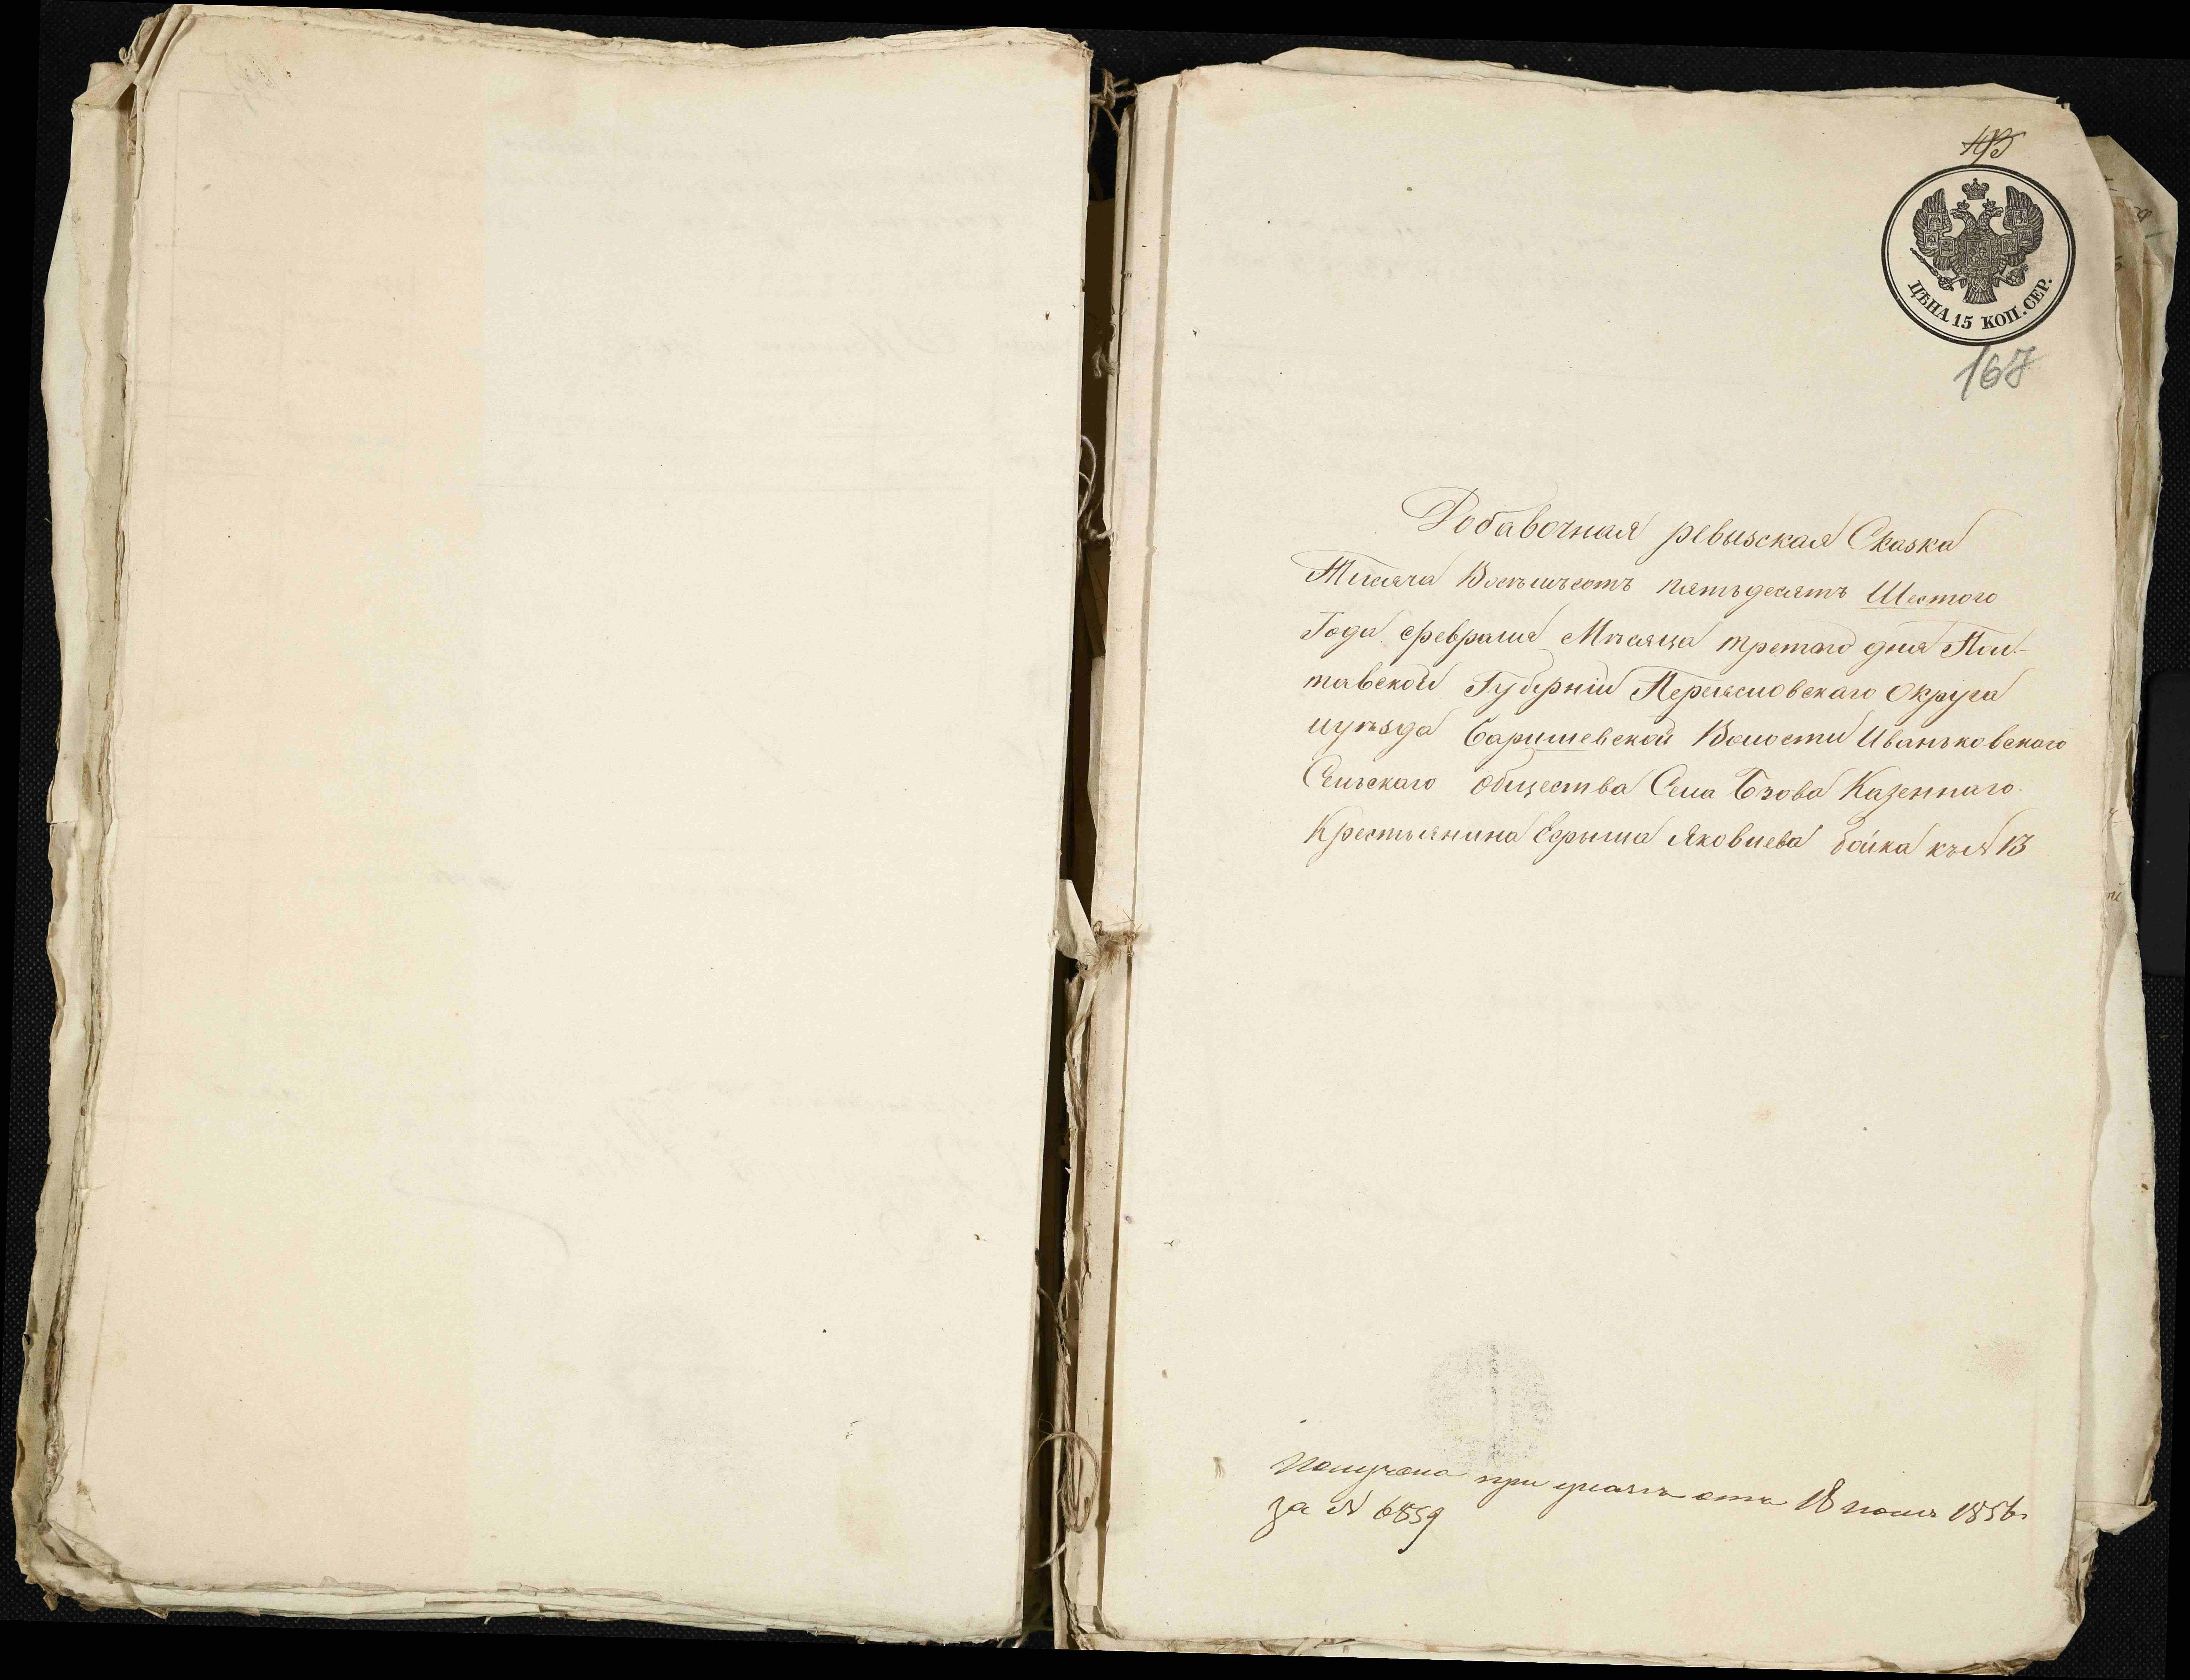 ЦѢНА 15 КОП. СЕР.
167
Добавочная ревизская Сказка
Тисяча Восѣмъсотъ пятъдесятъ Шестого
Года февраля Мѣсяца третаго дня Пол-
тавской Губерніи Переясловскаго Округа
иуѣзда Баришевской Волости Иванъковскаго
Селъскаго Общества Села Бзова Казеннаго
Крестьянина Яковлева бойка къ № 13
Получена при указѣ отъ 18 1856
за № 6859